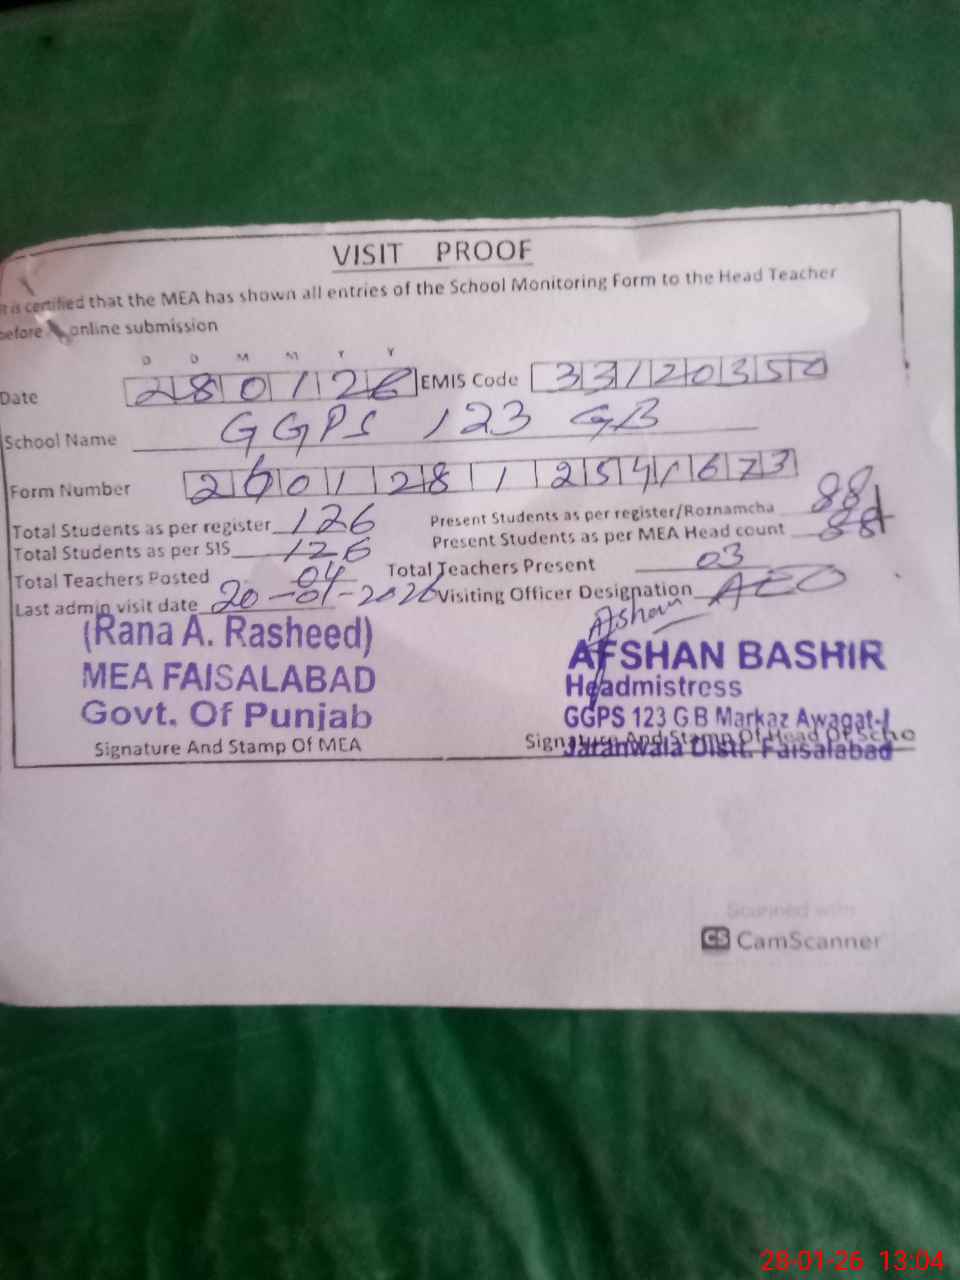 VISIT PROOF
It is certified that the MEA has shown all entries of the School Monitoring Form to the Head Teacher
before online submission
D D M M Y Y
Date 280126 EMIS Code 33120350
School Name GGPS 123 GB
Form Number 260128 1 2541673
Total Students as per register 126 Present Students as per register/Roznamcha 88
Total Students as per SIS 126 Present Students as per MEA Head count 88
Total Teachers Posted 04 Total Teachers Present 03
Last admin visit date 20-01-2026 Visiting Officer Designation AEO
Afshan
(Rana A. Rasheed)
MEA FAISALABAD
Govt. Of Punjab
Signature And Stamp Of MEA
AFSHAN BASHIR
Headmistress
GGPS 123 GB Markaz Awagat-I
Jaranwala Distt. Faisalabad
Signature And Stamp Of Head Of Scho
Scanned with
CS CamScanner
28-01-26 13:04